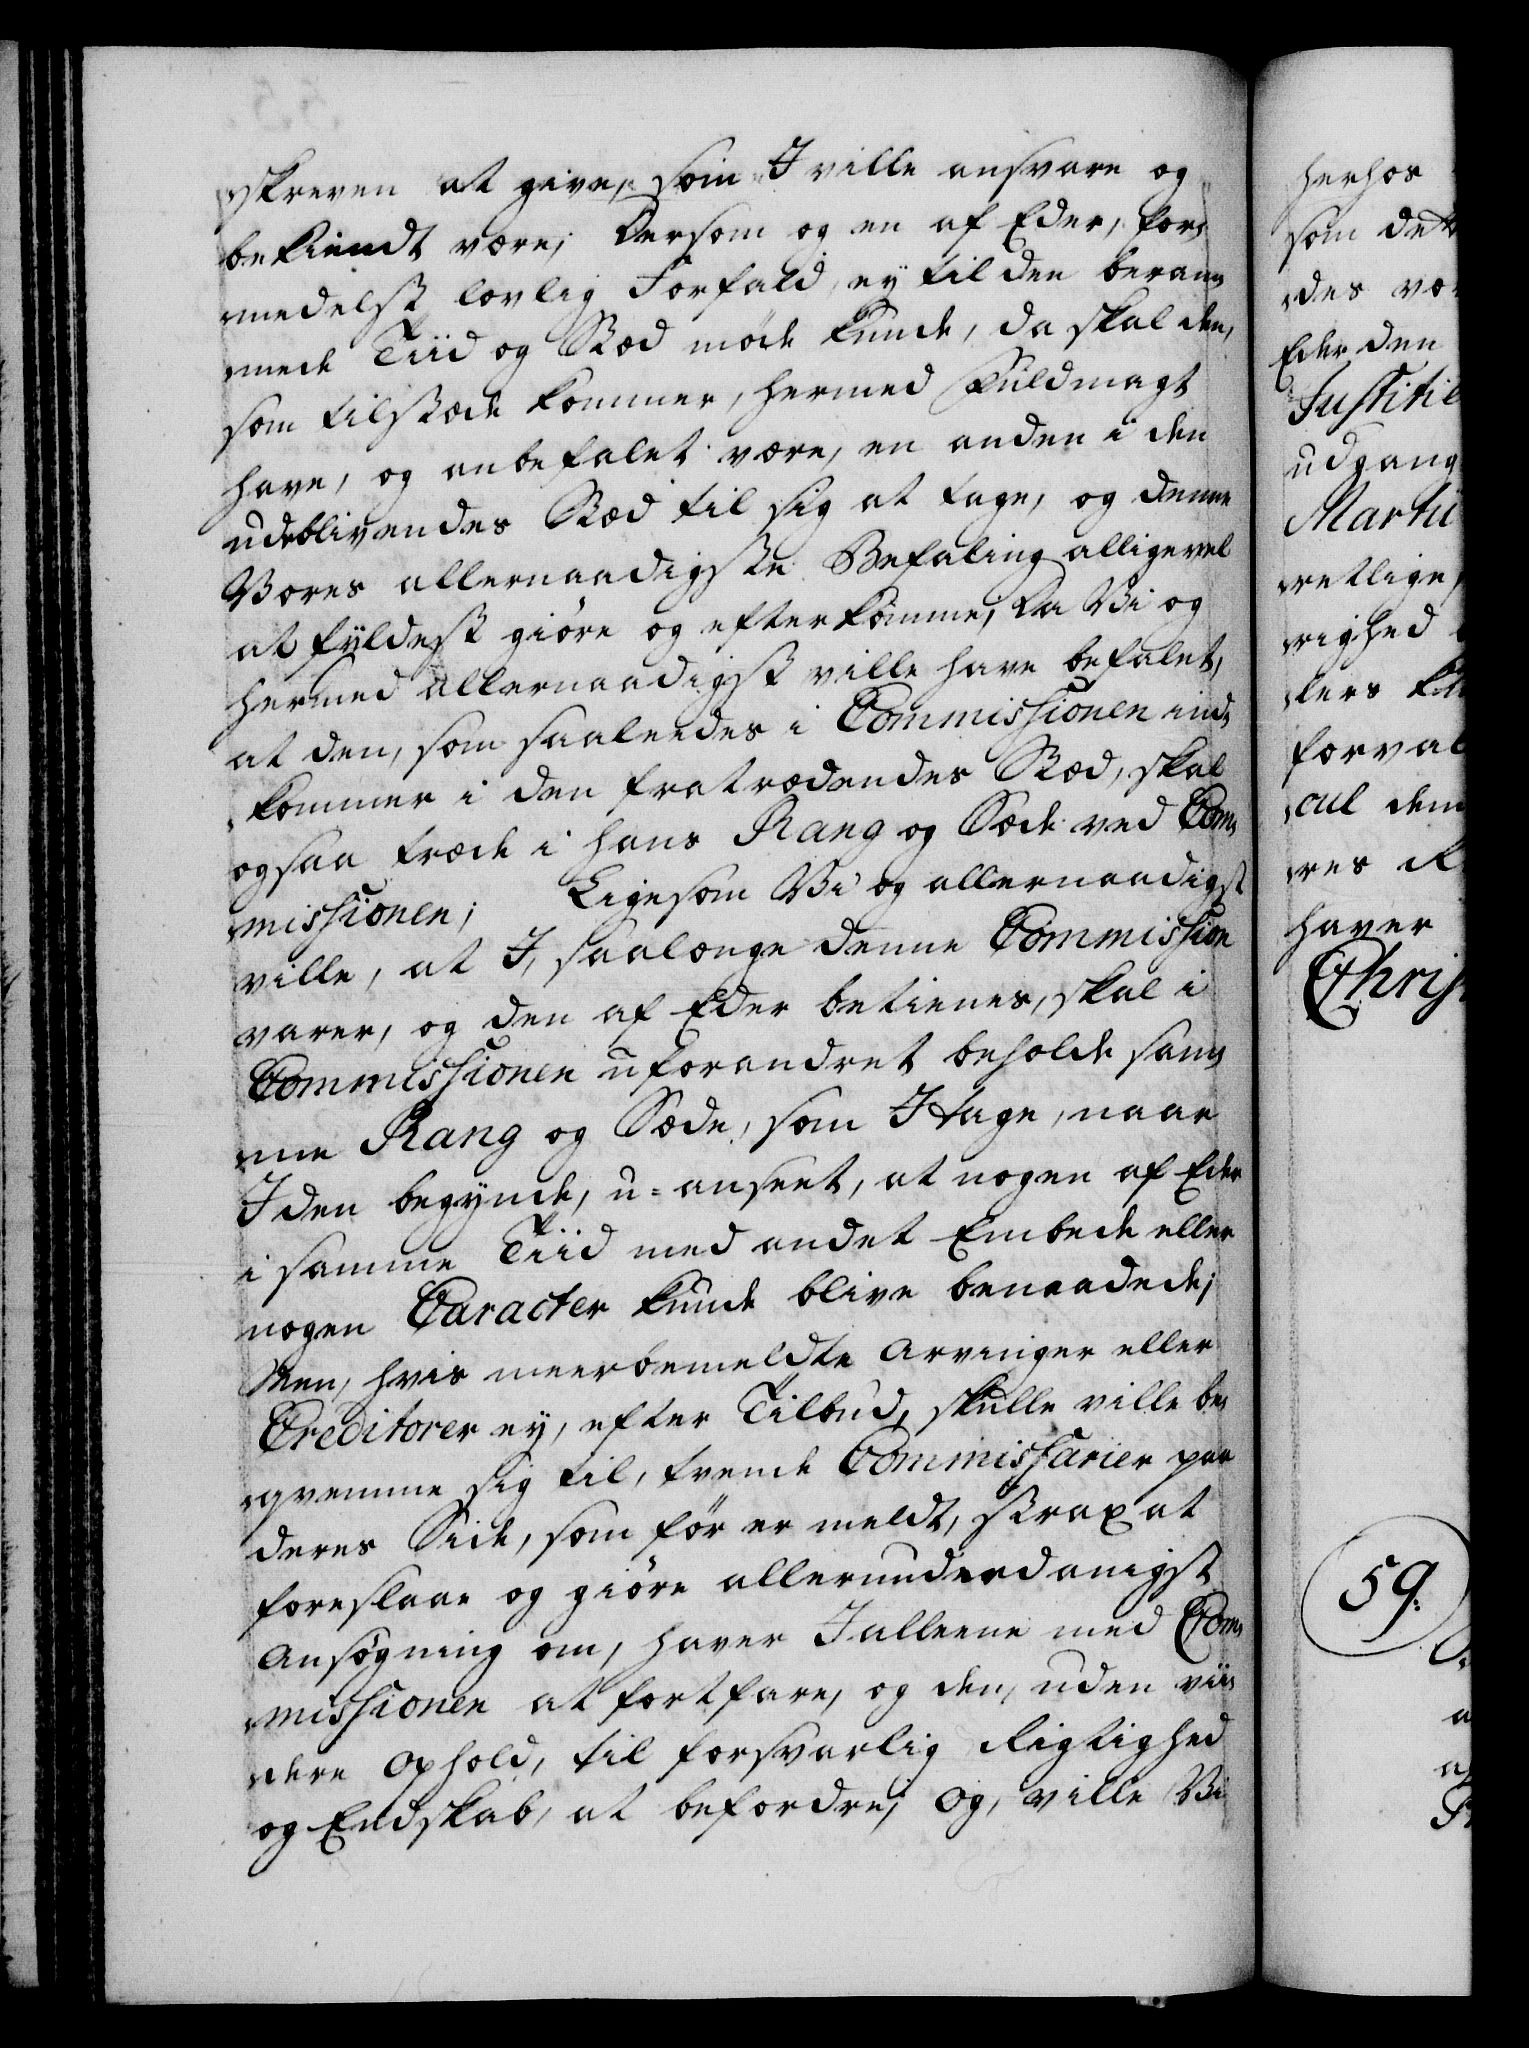 skreven at give, som I ville ansvare og
bekiendt være; Dersom og en af Eder, for-
medelst lovlig Forfald, ey til den beram-
mede Tiid og Stæd møde kunde, da skal den,
som tilstæde kommer, hermed Fuldmagt
have, og anbefalet være, en anden i den
udeblivendes Stæd til sig at tage, og denne
Vores allernaadigste Befaling alligevel
at fyldest giøre og efterkomme; Da Vi og
hermed allernaadigst ville have befalet,
at den, som saaledes i Commissionen ind-
kommer i den fratrædendes Stæd, skal
ogsaa træde i hans Rang og Sæde ved Com-
missionen; Ligesom Vi og allernaadigst
ville, at I, saalænge denne Commission
varer, og den af Eder betienes, skal i
Commissionen uforandret beholde sam-
me Rang og Sæde, som I tage, naar
I den begynde, u-anseet, at nogen af Eder
i samme Tiid med andet Embede eller
nogen Caracter kunde blive benaadede;
Men, hvis meerbemeldte Arvinger eller
Creditorer ey, efter Tilbud, skulle ville be-
qvemme sig til, tvende Commissarier paa
deres Side, som før er meldt, strax at
foreslaae og giøre allerunderdanigst
Ansøgning om, haver I alleene med Com-
missionen at fortfare, og den, uden vii-
dere Ophold, til forsvarlig Rigtighed
og Endskab, at befordre; Og, ville Vi
herhos
som dett
des vær
Eder den
Justitie
udgang
Martii
retlige,
righed
lers
forval
cul dem
res
haver
Chris
59.